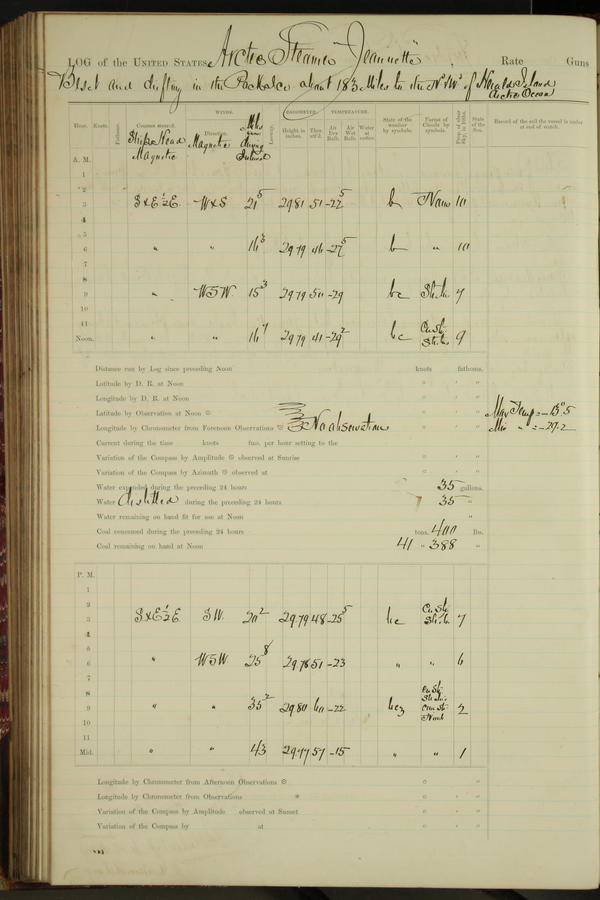 LOG of the UNITED STATES Arctic Steamer "Jeannette", Rate Guns
Beset and drifting in the Pack Ice about 183 Miles to the Nd & Wd of Herald Island
Arctic Ocean
WINDS. BAROMETER. TEMPERATURE.
Hour. Knots. Fathoms. Courses steered. Direction. Leeway. Height in inches. Ther. att'd. Air Dry Bulb. Air Wet Bulb. Water at surface. State of the weather by symbols. Forms of Clouds by symbols. State of the Sea. Record of the sail the vessel is under at end of watch.
Ship's Head Magnetic Magnetic Miles during Interval
A. M.
1
2
3 S & E ½ E. W & S 21 5 29 81 51 -22 5 b None 10
4
5
6 " " 16 3 29 79 46 -27 5 b " 10
7
8
9 " WSW. 15 3 29 79 50 -29 bc 7
10
11
Noon. " " 16 7 29 79 41 -29 2 bc 9
Distance run by Log since preceding Noon knots fathoms.
Latitude by D. R. at Noon ° ' "
Longitude by D. R. at Noon ° ' "
Latitude by Observation at Noon ° ' " Max Temp = -15°.5
Longitude by Chronometer from Forenoon Observations No observation ° ' " Min " = -29.2
Current during the time knots fms. per hour setting to the
Variation of the Compass by Amplitude observed at Sunrise ° ' "
Variation of the Compass by Azimuth observed at ° ' "
Water expended during the preceding 24 hours 35 gallons.
Water distilled during the preceding 24 hours 35 "
Water remaining on hand fit for use at Noon "
Coal consumed during the preceding 24 hours tons. 400 lbs.
Coal remaining on hand at Noon 41 " 388 "
P. M.
1
2
3 S & E ½ E. SW. 20 2 29 79 48 -25 5 bc 7
4
5
6 " WSW 25 8 29 78 51 -23 " " 6
7
8
9 " " 35 2 29 80 60 -22 bcz 2
10
11
Mid. " " 43 29 77 57 -15 " " 1
Longitude by Chronometer from Afternoon Observations ° ' "
Longitude by Chronometer from Observations ° ' "
Variation of the Compass by Amplitude observed at Sunset ° ' "
Variation of the Compass by at ° ' "